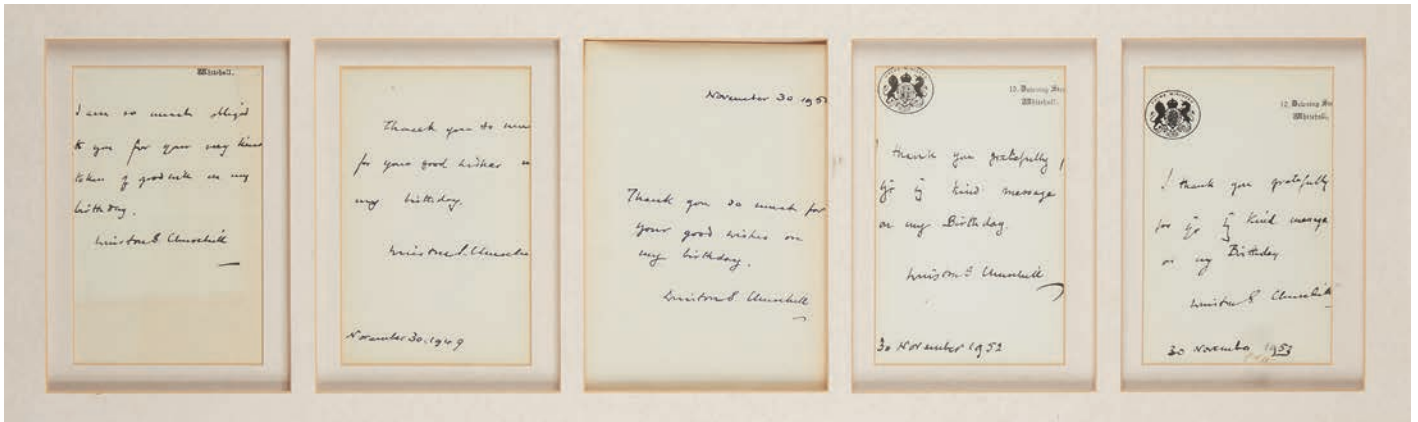 Whitehall.
I am so much obliged
to you for your very kind
token of goodwill on my
birthday.
Winston S. Churchill
Thank you so
for your good wishes
my birthday.
Winston S. Churchill
November 30. 1949
November 30. 195
Thank you so much for
your good wishes on
my birthday.
Winston S. Churchill
PRIME MINISTER
10, Downing Str
Whitehall.
I thank you gratefully
for yr kind message
on my Birthday.
Winston S. Churchill
30 November 1952
PRIME MINISTER
10, Downing Str
Whitehall,
I thank you gratefully
for yr kind message
on my Birthday
Winston S. Churchill
30 November 1953